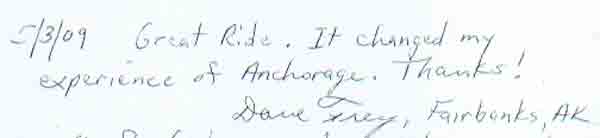 5/3/09 Great Ride. It changed my
experience of Anchorage. Thanks!
Dave Frey, Fairbanks, AK